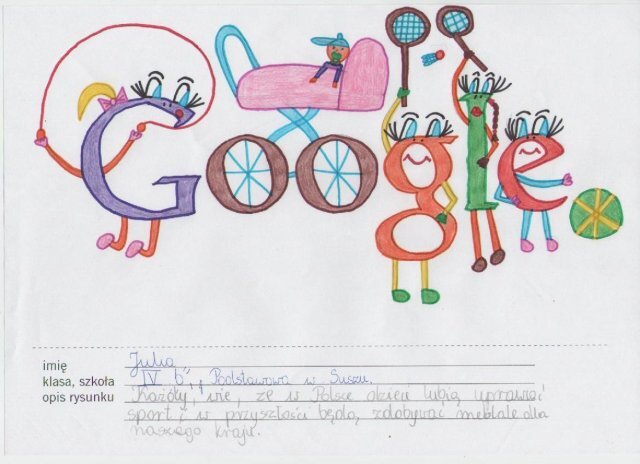 Google
imię Julia
klasa, szkoła IV b", Podstawowa w Suszu.
opis rysunku Każdy, wie, ze w Polsce dzieci lubią uprawiać
sport i w przyszłości będą zdobywać medale dla
naszego kraju.